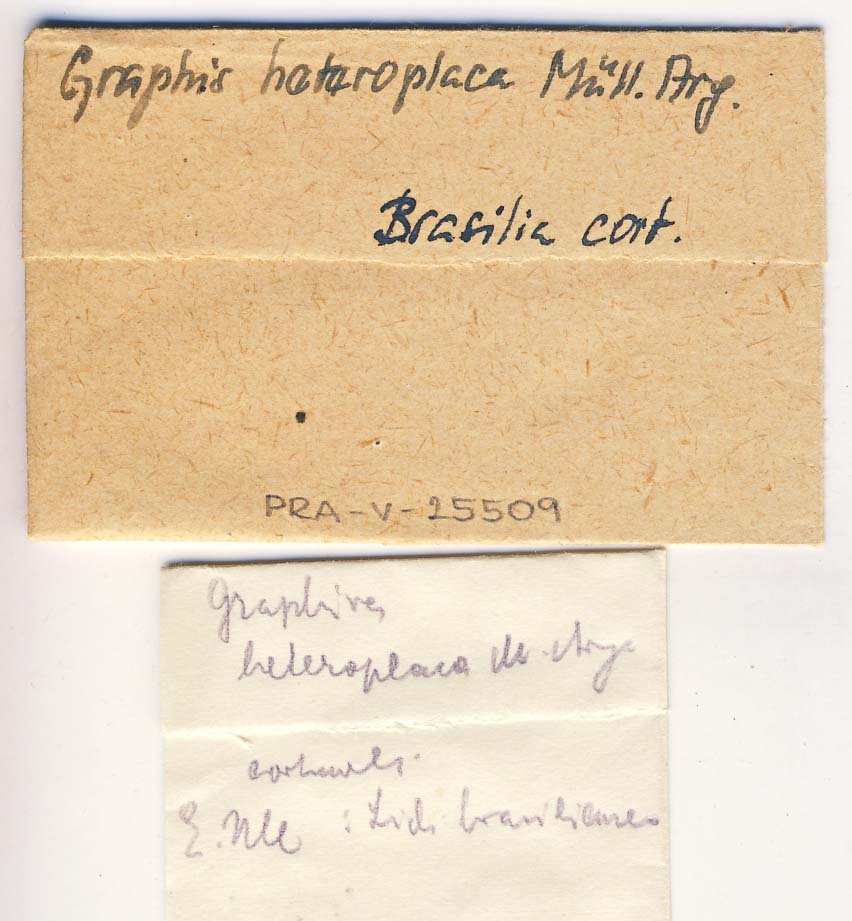 Graphis heteroplaca Müll. Arg.
Brasilia cort.
PRA-V-25509
heteroplaca M. Arg.
E. Ule : Lich. brasilienses